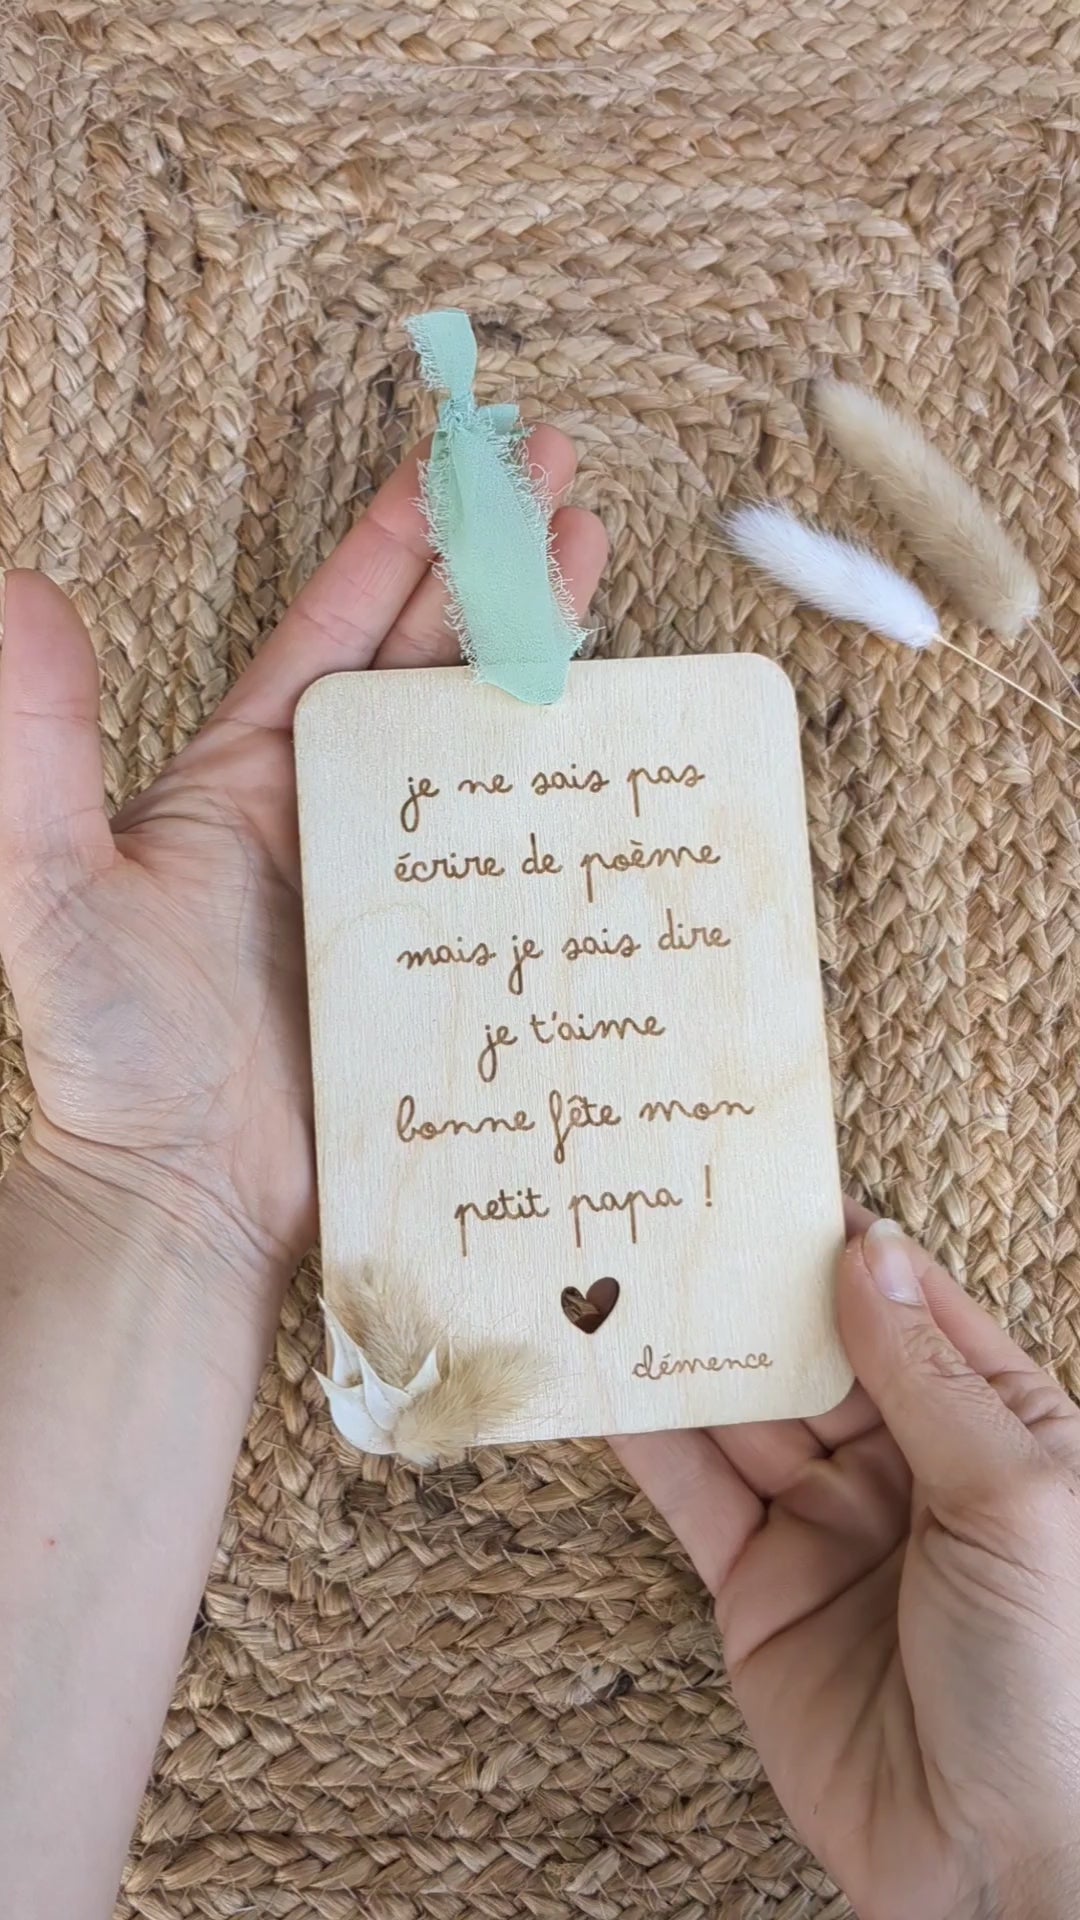 je ne sais pas
écrire de poème
mais je sais dire
je t'aime
bonne fête mon
petit papa !
clémence